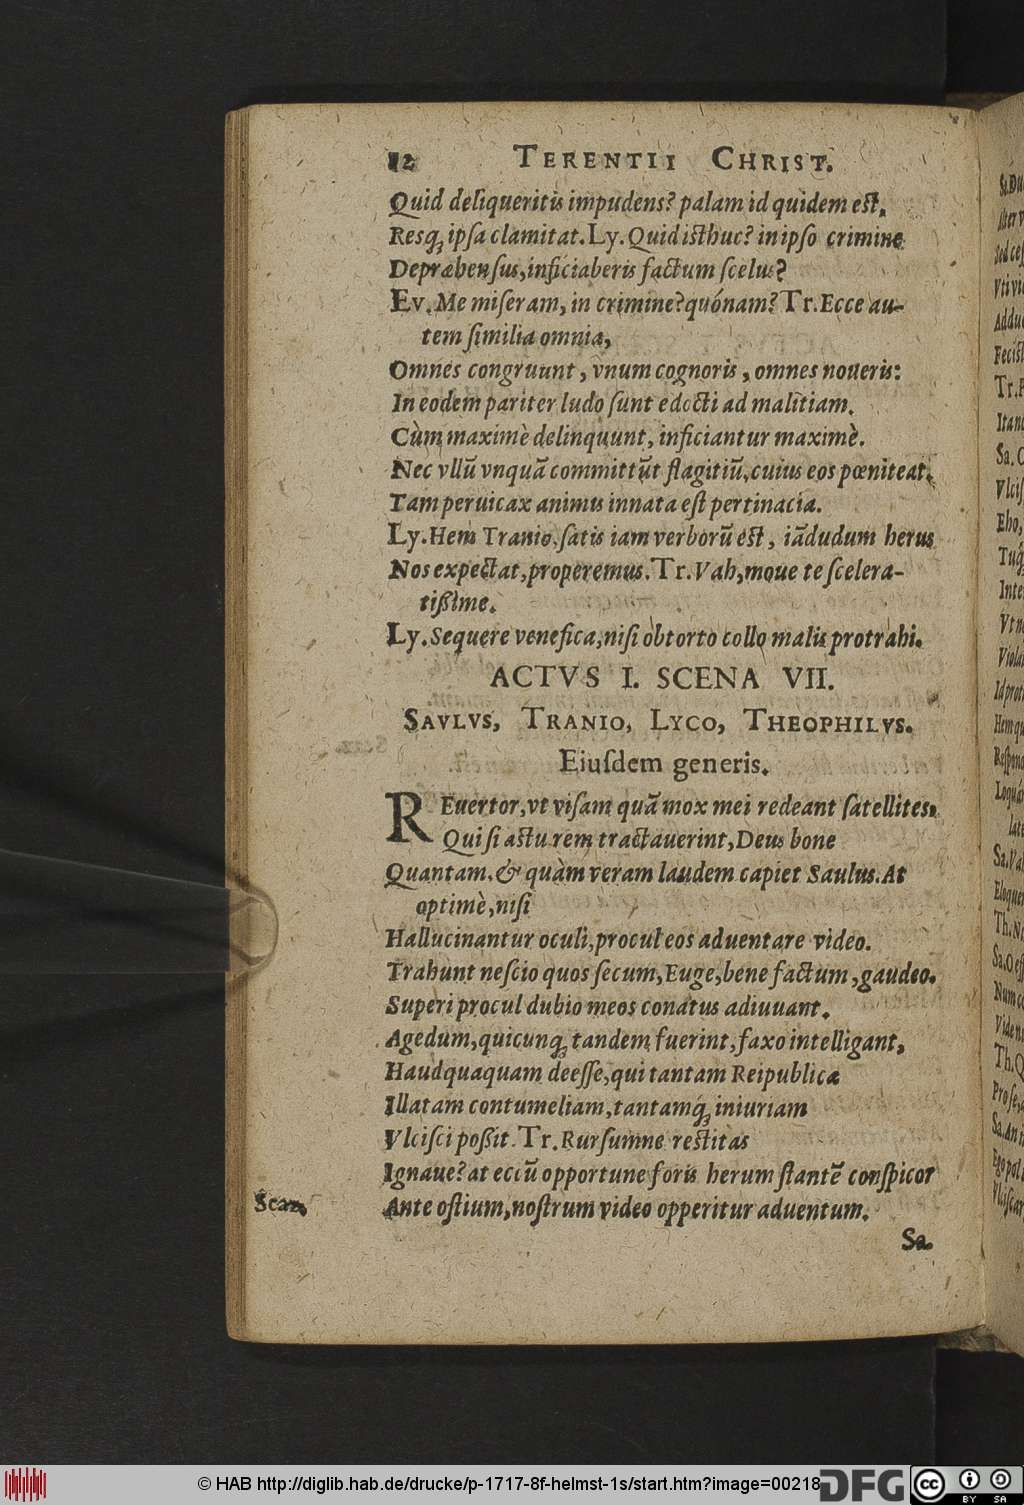 12 TERENTII CHRIST.
Quid deliqueritis impudens? palam id quidem est,
Resq́; ipsa clamitat. Ly. Quid isthuc? in ipso crimine
Depræhensus, inficiaberis factum scelus?
Ev. Me miseram, in crimine? quónam? Tr. Ecce au-
tem similia omnia,
Omnes congruunt, vnum cognoris, omnes noueris:
In eodem pariter ludo sunt edocti ad malitiam.
Cùm maximè delinquunt, inficiantur maximè.
Nec vllū vnquā committūt flagitiū, cuius eos pœniteat.
Tam peruicax animus innata est pertinacia.
Ly. Hem Tranio. satis iam verborū est, iādudum herus
Nos expectat, properemus. Tr. Vah, moue te scelera-
tißime.
Ly. Sequere venefica, nisi obtorto collo malis protrahi.
ACTVS I. SCENA VII.
SAVLVS, TRANIO, LYCO, THEOPHILVS.
Eiusdem generis.
REuertor, vt visam quā mox mei redeant satellites.
Qui si astu rem tractauerint, Deus bone
Quantam. & quàm veram laudem capiet Saulus. At
optimè, nisi
Hallucinantur oculi, procul eos aduentare video.
Trahunt nescio quos secum, Euge, bene factum, gaudeo.
Superi procul dubio meos conatus adiuuant.
Agedum, quicunq; tandem fuerint, faxo intelligant,
Haudquaquam deesse, qui tantam Reipublicæ
Illatam contumeliam, tantamq́; iniuriam
Vlcisci poßit. Tr. Rursumne restitas
Ignaue? at eccū opportune foris herum stantē conspicor
Scaz. Ante ostium, nostrum video opperitur aduentum.
Sa.
© HAB http://diglib.hab.de/drucke/p-1717-8f-helmst-1s/start.htm?image=00218
DFG
cc BY SA